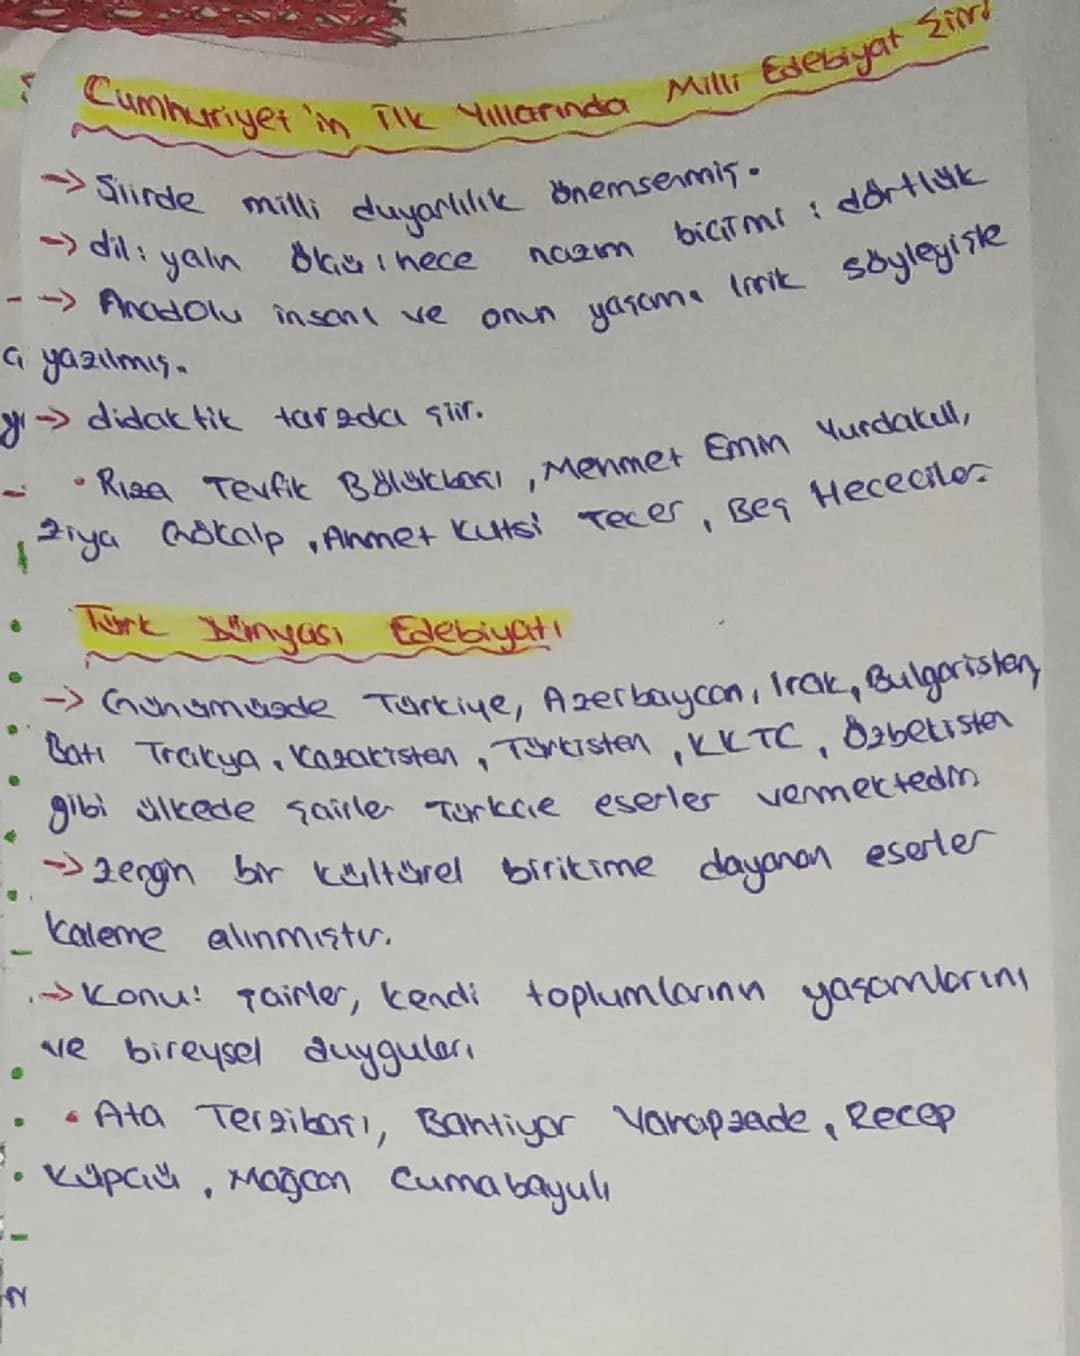 Cumhuriyet'in İlk Yıllarında Milli Edebiyat Şiiri
→ Şiirde milli duyarlılık önemsenmiş.
→ dil: yalın ölçü: hece nazım biçimi: dörtlük
→ Anadolu insanı ve onun yaşamı lirik söyleyişle
yazılmış.
→ didaktik tarzda şiir.
• Rıza Tevfik Bölükbaşı, Mehmet Emin Yurdakul,
Ziya Gökalp, Ahmet Kutsi Tecer, Beş Hececiler
Türk Dünyası Edebiyatı
→ Günümüzde Türkiye, Azerbaycan, Irak, Bulgaristan,
Batı Trakya, Kazakistan, Türkistan, KKTC, Özbekistan
gibi ülkede şairler Türkçe eserler vermektedir.
→ zengin bir kültürel birikime dayanan eserler
kaleme alınmıştır.
→ Konu: şairler, kendi toplumlarının yaşamlarını
ve bireysel duyguları
• Ata Terzibaşı, Bahtiyar Vahapzade, Recep
Küpçü, Mağcan Cumabayulı